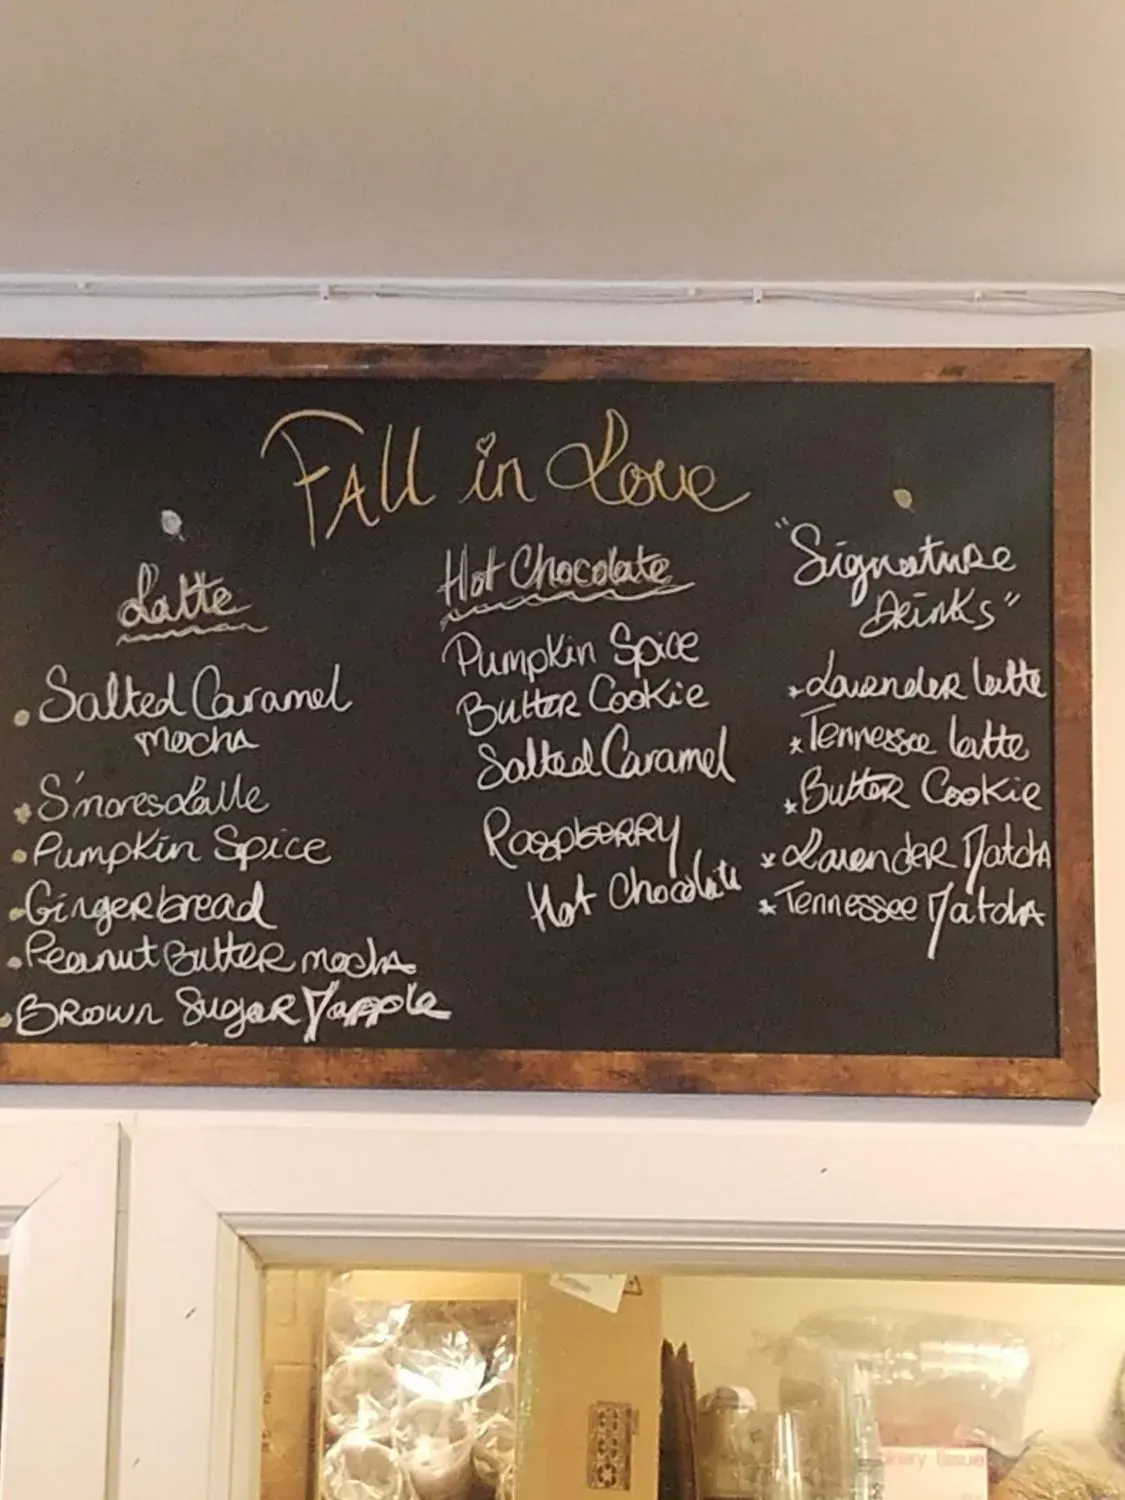 Fall in Love
Latte
Salted Caramel
mocha
S'mores Latte
Pumpkin Spice
Gingerbread
Peanut Butter mocha
Brown Sugar Mapple
Hot Chocolate
Pumpkin Spice
Butter Cookie
Salted Caramel
Raspberry
Hot Chocolate
"Signature
Drinks"
Lavender latte
Tennessee latte
Butter Cookie
Lavender Matcha
Tennessee Matcha
tissue